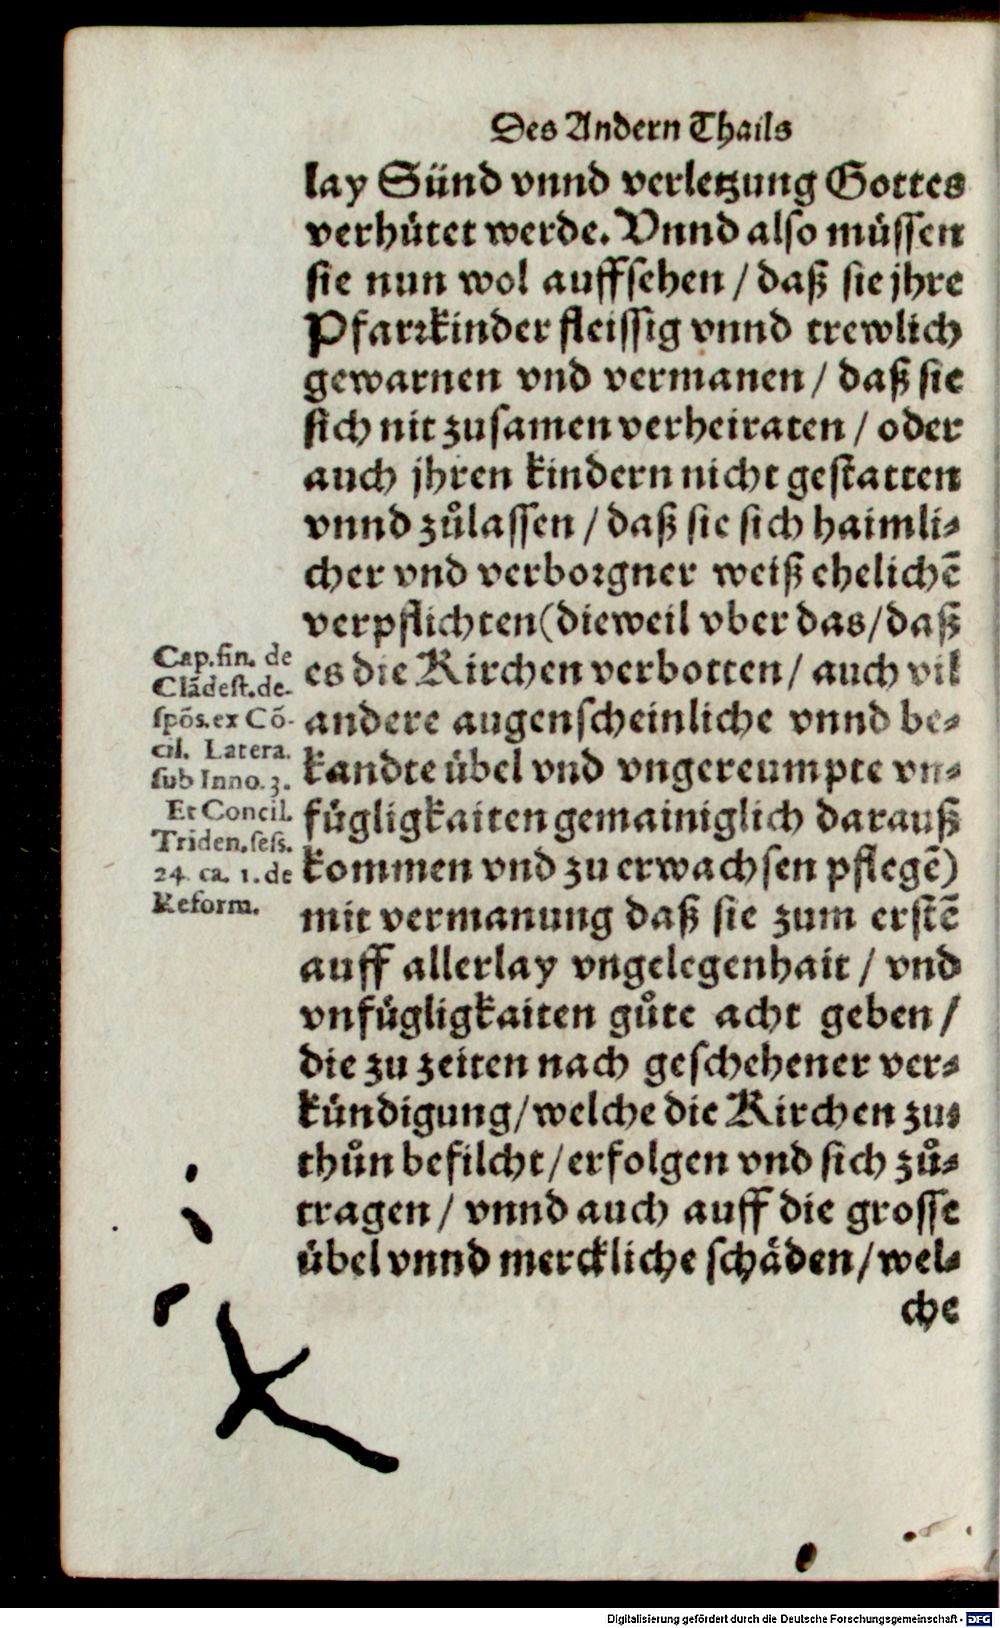 Des Andern Thails
lay Sünd vnnd verletzung Gottes
verhütet werde. Vnnd also müssen
sie nun wol auffsehen / daß sie jhre
Pfarrkinder fleissig vnnd trewlich
gewarnen vnd vermanen / daß sie
sich nit zusamen verheiraten / oder
auch jhren kindern nicht gestatten
vnnd zůlassen / daß sie sich haimli-
cher vnd verborgner weiß ehelichē
verpflichten (dieweil vber das / daß
es die Kirchen verbotten / auch vil
andere augenscheinliche vnnd be-
kandte übel vnd vngereumpte vn-
fügligkaiten gemainiglich darauß
kommen vnd zu erwachsen pflegē)
mit vermanung daß sie zum erstē
auff allerlay vngelegenhait / vnd
vnfügligkaiten gůte acht geben /
die zu zeiten nach geschehener ver-
kündigung / welche die Kirchen zu-
thůn befilcht / erfolgen vnd sich zů-
tragen / vnnd auch auff die grosse
übel vnnd merckliche schäden / wel-
che
Cap. fin. de
Clādest. de-
spōs. ex Cō-
cil. Latera.
sub Inno. 3.
Et Concil.
Triden. sess.
24. ca. 1. de
Reform.
Digitalisierung gefördert durch die Deutsche Forschungsgemeinschaft - DFG